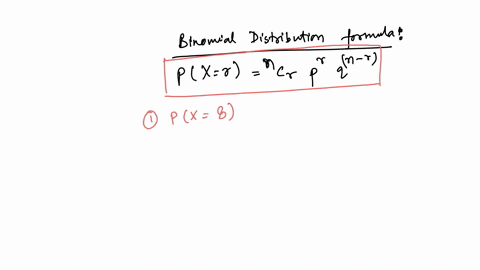 Binomial Distribution formula:
P(X=r) = ⁿCᵣ pʳ q⁽ⁿ⁻ʳ⁾
① P(X = 8)